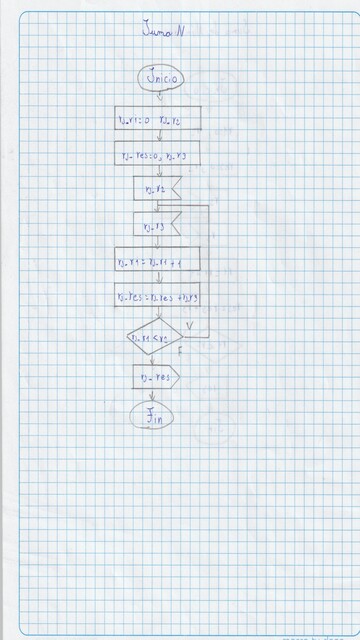 Suma N
Inicio
n_r1=0 n_r2
n_res=0, n_r3
n_r2
n_r3
n_r1=n_r1+1
n_res=n_res+n_r3
n_r1<r2
V
F
n_res
Fin